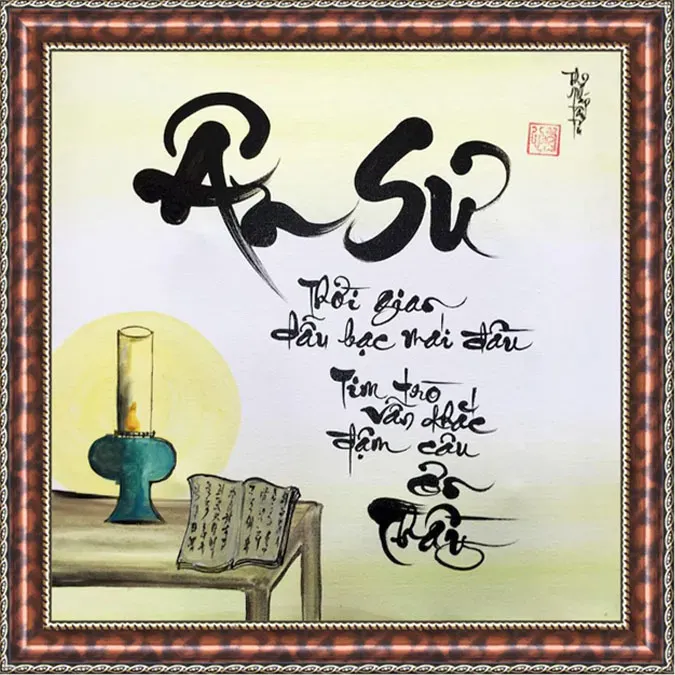 Ân Sư
Thời gian
dẫu bạc mái đầu
Tim trò
vẫn khắc
đậm câu
ơn
Thầy